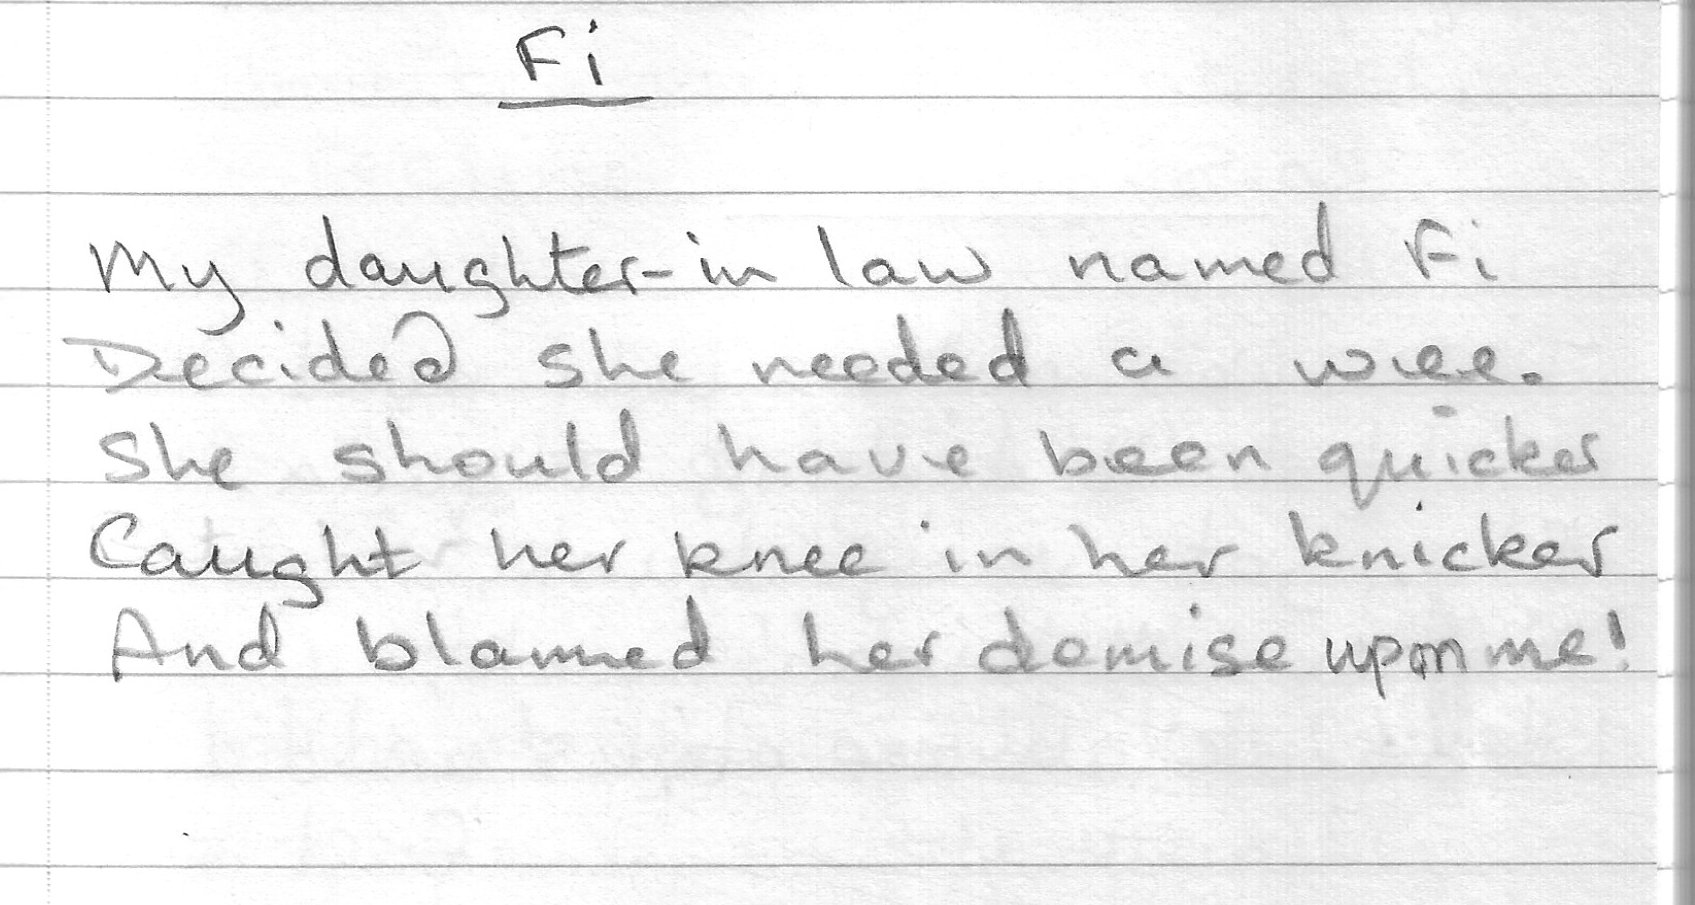 Fi
My daughter-in law named Fi
Decided she needed a wee.
She should have been quicker
Caught her knee in her knicker
And blamed her demise upon me!